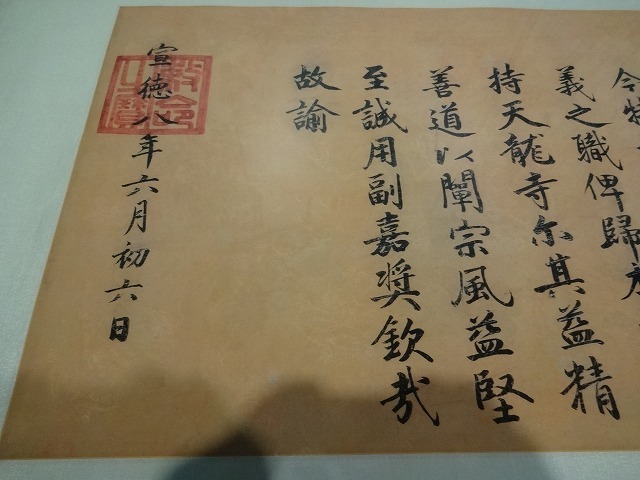 令
義之職俾歸
持天龍寺尔其益精
善道以闡宗風益堅
至誠用副嘉奨欽哉
故諭
宣徳八年六月初六日
敕命
之寶